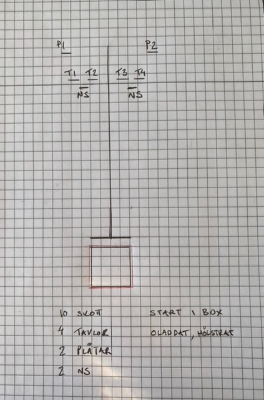 P1 P2
T1 T2 T3 T4
NS NS
10 SKOTT START I BOX
4 TAVLOR OLADDAT, HÖLSTRAT
2 PLÅTAR
2 NS